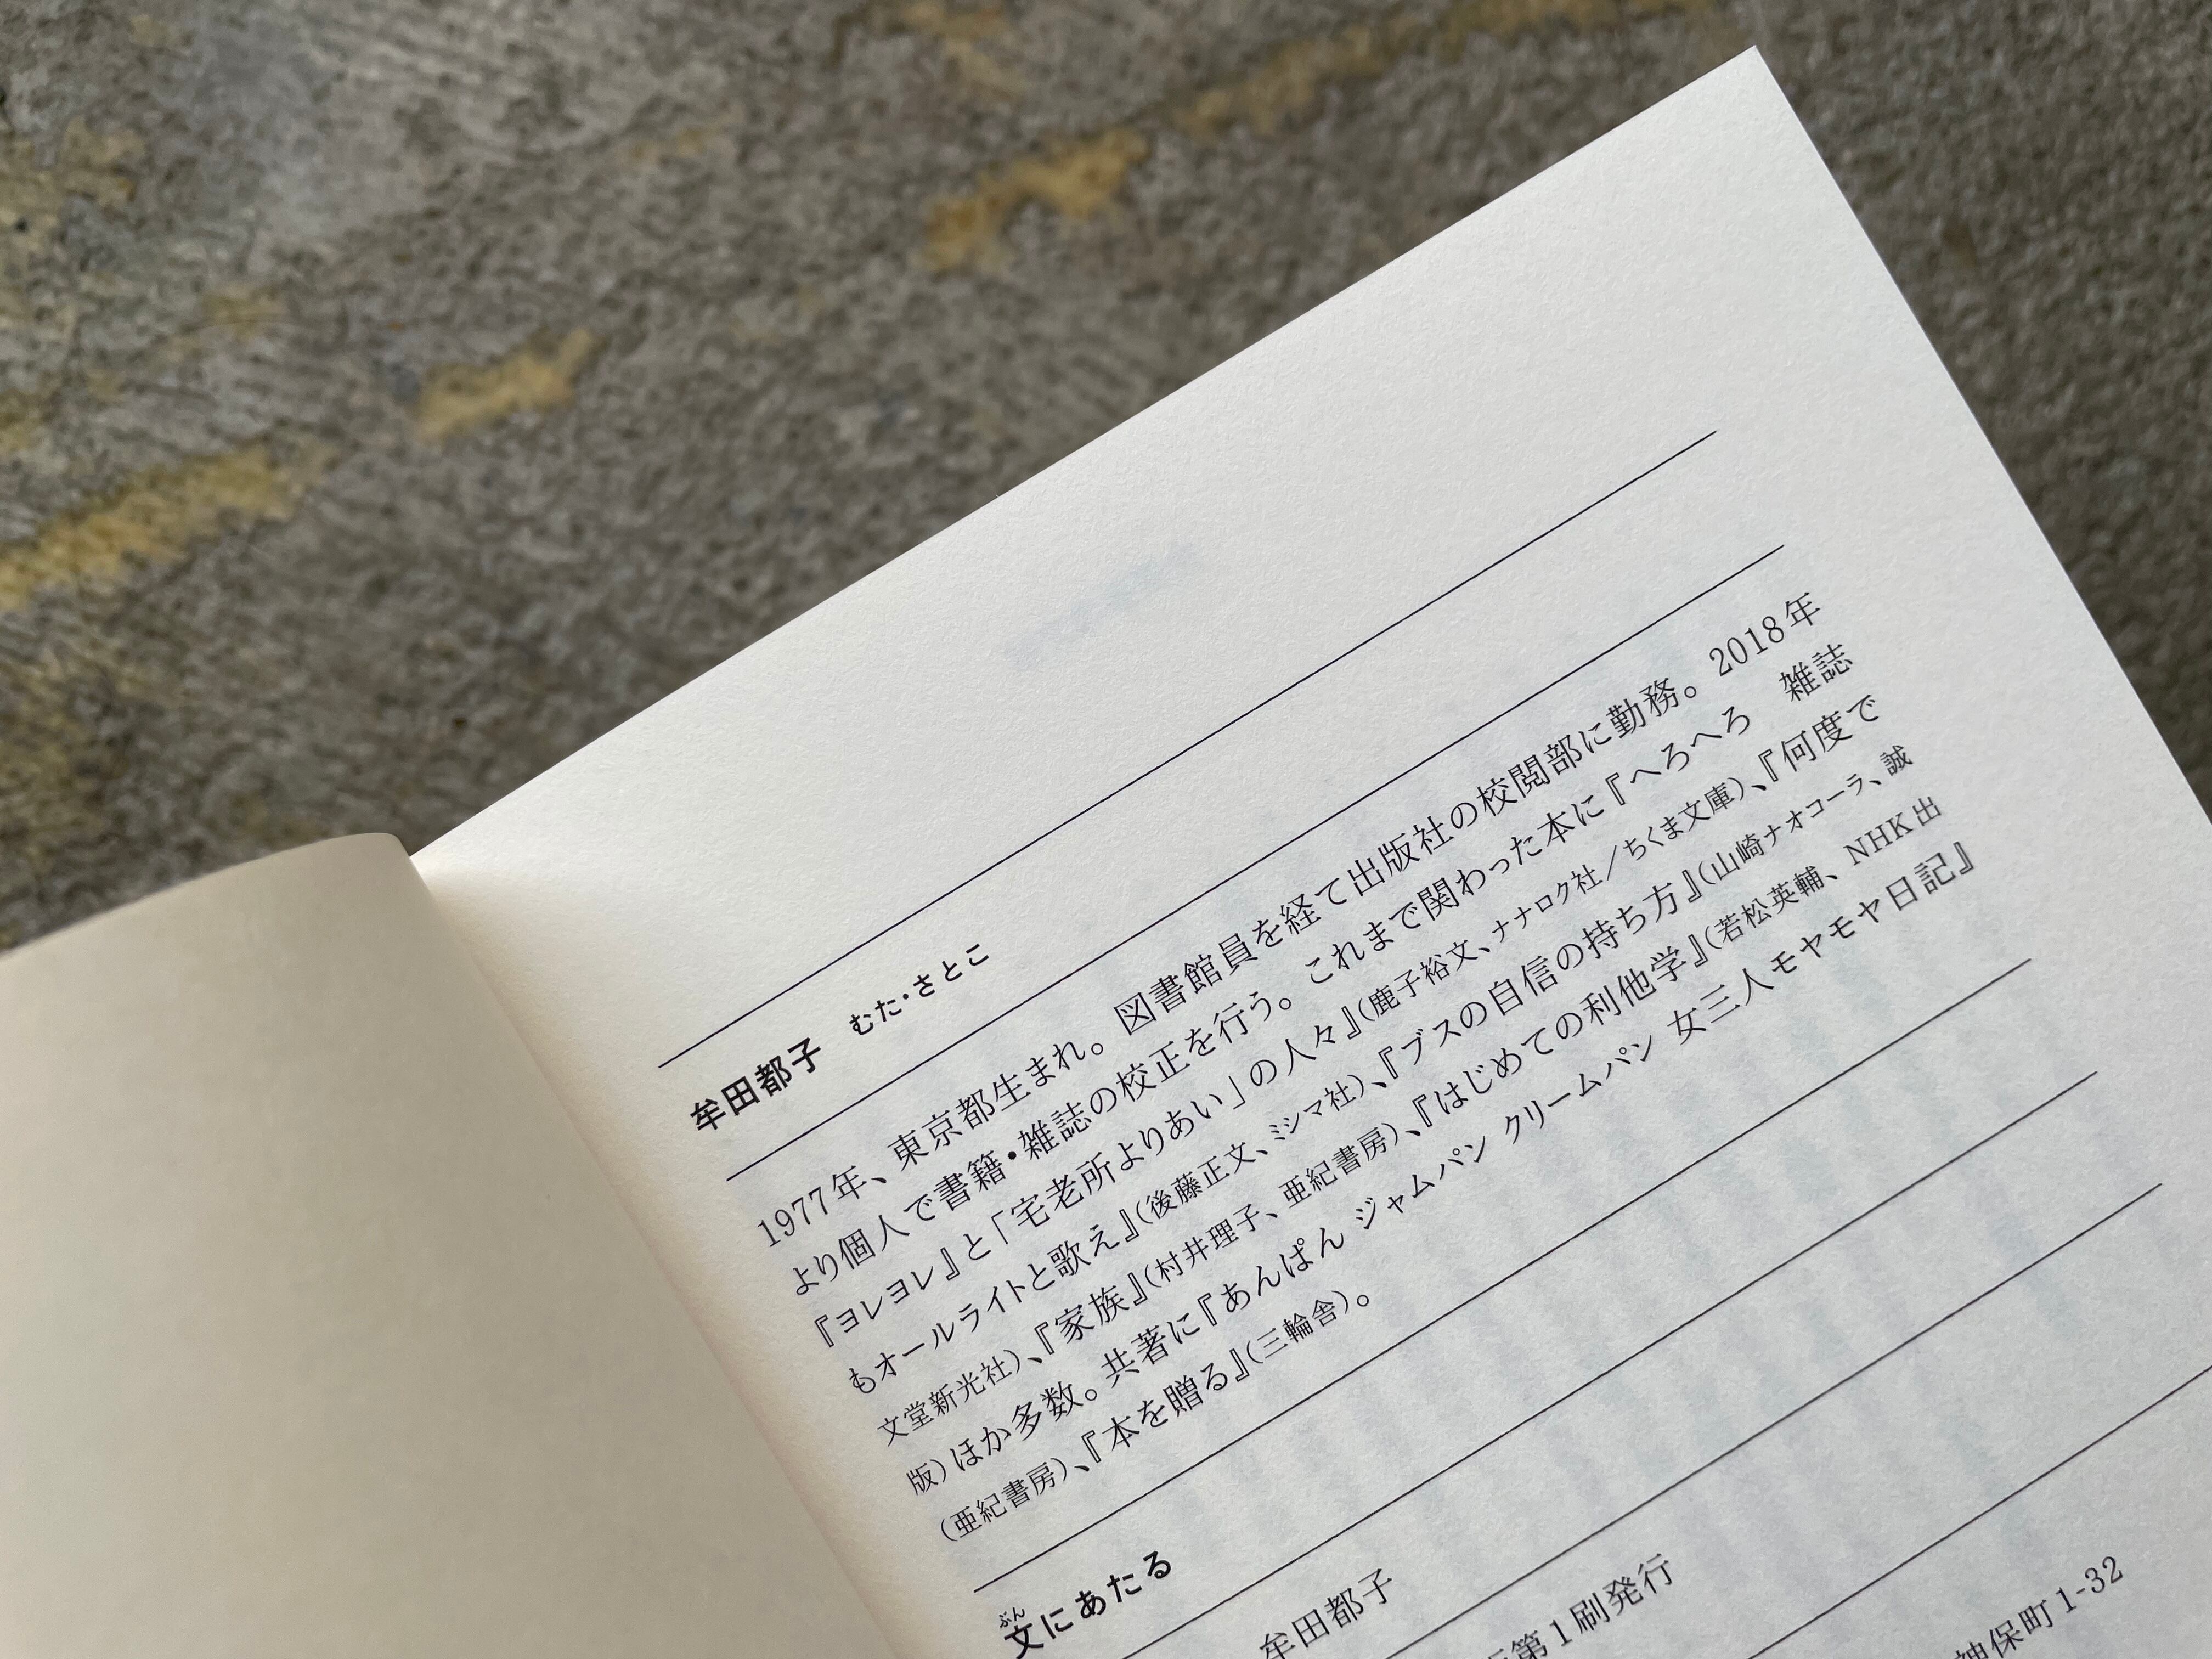 牟田都子　むた・さとこ
1977年、東京都生まれ。図書館員を経て出版社の校閲部に勤務。2018年
より個人で書籍・雑誌の校正を行う。これまで関わった本に『へろへろ　雑誌
『ヨレヨレ』と「宅老所よりあい」の人々』(鹿子裕文、ナナロク社／ちくま文庫)、『何度で
もオールライトと歌え』(後藤正文、ミシマ社)、『ブスの自信の持ち方』(山崎ナオコーラ、誠
文堂新光社)、『家族』(村井理子、亜紀書房)、『はじめての利他学』(若松英輔、NHK出
版)ほか多数。共著に『あんぱん ジャムパン クリームパン 女三人モヤモヤ日記』
(亜紀書房)、『本を贈る』(三輪舎)。
ぶん
文にあたる
牟田都子
第1刷発行
神保町1-32